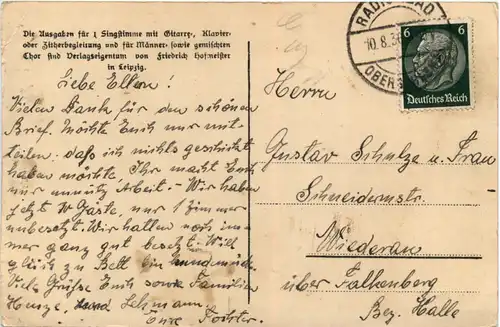 Die Ausgaben für 1 Singstimme mit Gitarre-, Klavier-
oder Zitherbegleitung und für Männer- sowie gemischten
Chor sind Verlagseigentum von Friedrich Hofmeister
in Leipzig.
Liebe Eltern!
Vielen Dank für den schönen
Brief. Möchte Euch nur mit-
teilen, daß ich nichts geschickt
haben möchte, Ihr macht Euch
nur unnütz Arbeit. Wir haben
jetzt Gäste, nur 1 Zimmer
unbesetzt. Wir hatten noch im-
mer ganz gut besetzt. Will
Bett
Viele Grüße Euch sowie Familien
Lehmann.
Eure Tochter.
RADIUMBAD
10.8.36
OBER
6 6
Deutsches Reich
Herrn
Gustav Schulze u. Frau
Schneidermstr.
Wiederau
über Falkenberg
Bez. Halle